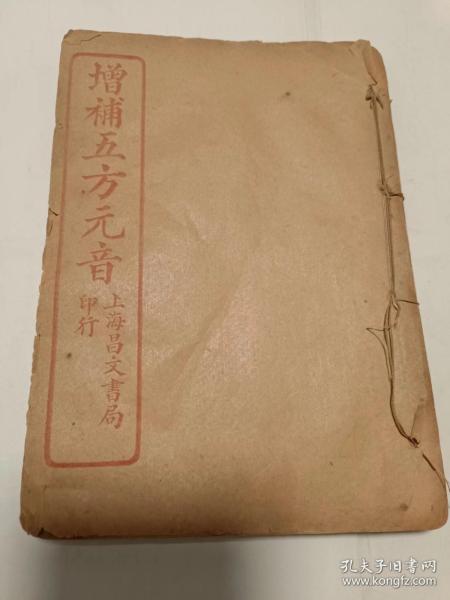 增補五方元音
上海昌文書局
印行
孔夫子旧書网
www.kongfz.com